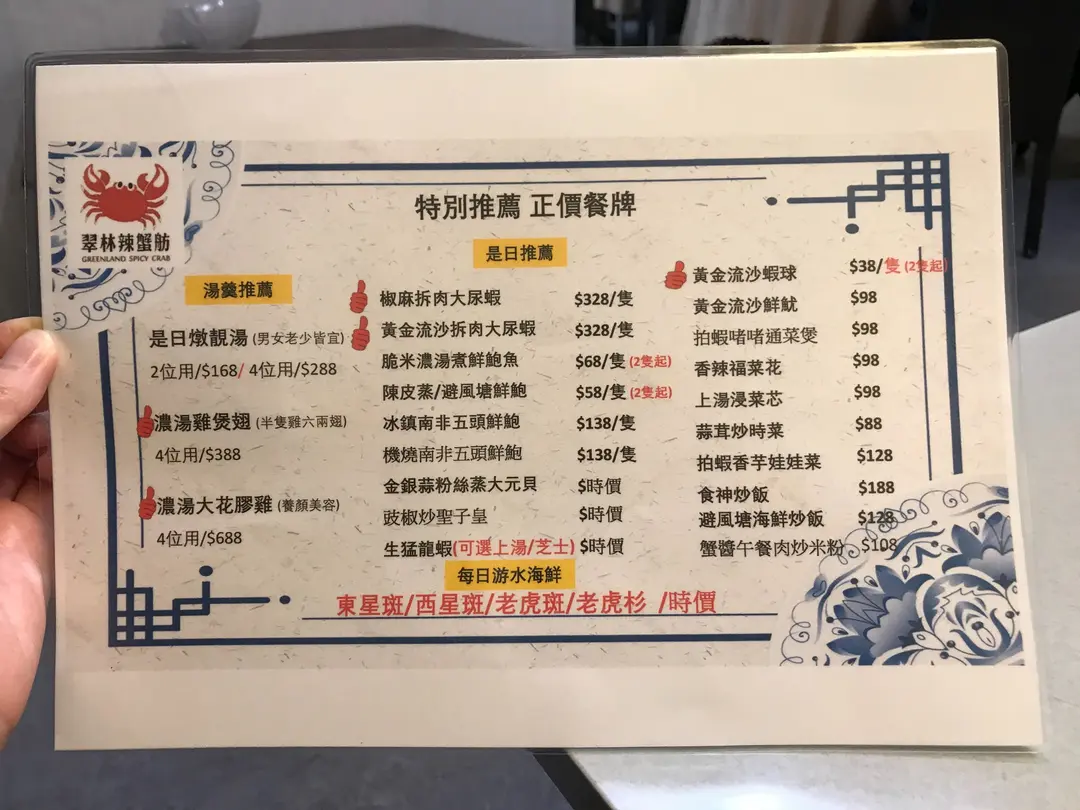 翠林辣蟹舫
GREENLAND SPICY CRAB
特別推薦 正價餐牌
湯羹推薦
是日燉靚湯 (男女老少皆宜)
2位用/$168/ 4位用/$288
濃湯雞煲翅 (半隻雞六兩翅)
4位用/$388
濃湯大花膠雞 (養顏美容)
4位用/$688
是日推薦
椒麻拆肉大尿蝦 $328/隻
黃金流沙拆肉大尿蝦 $328/隻
脆米濃湯煮鮮鮑魚 $68/隻 (2隻起)
陳皮蒸/避風塘鮮鮑 $58/隻 (2隻起)
冰鎮南非五頭鮮鮑 $138/隻
機燒南非五頭鮮鮑 $138/隻
金銀蒜粉絲蒸大元貝 $時價
豉椒炒聖子皇 $時價
生猛龍蝦(可選上湯/芝士) $時價
黃金流沙蝦球 $38/隻 (2隻起)
黃金流沙鮮魷 $98
拍蝦啫啫通菜煲 $98
香辣福菜花 $98
上湯浸菜芯 $98
蒜茸炒時菜 $88
拍蝦香芋娃娃菜 $128
食神炒飯 $188
避風塘海鮮炒飯 $128
蟹醬午餐肉炒米粉 $108
每日游水海鮮
東星斑/西星斑/老虎斑/老虎杉 /時價